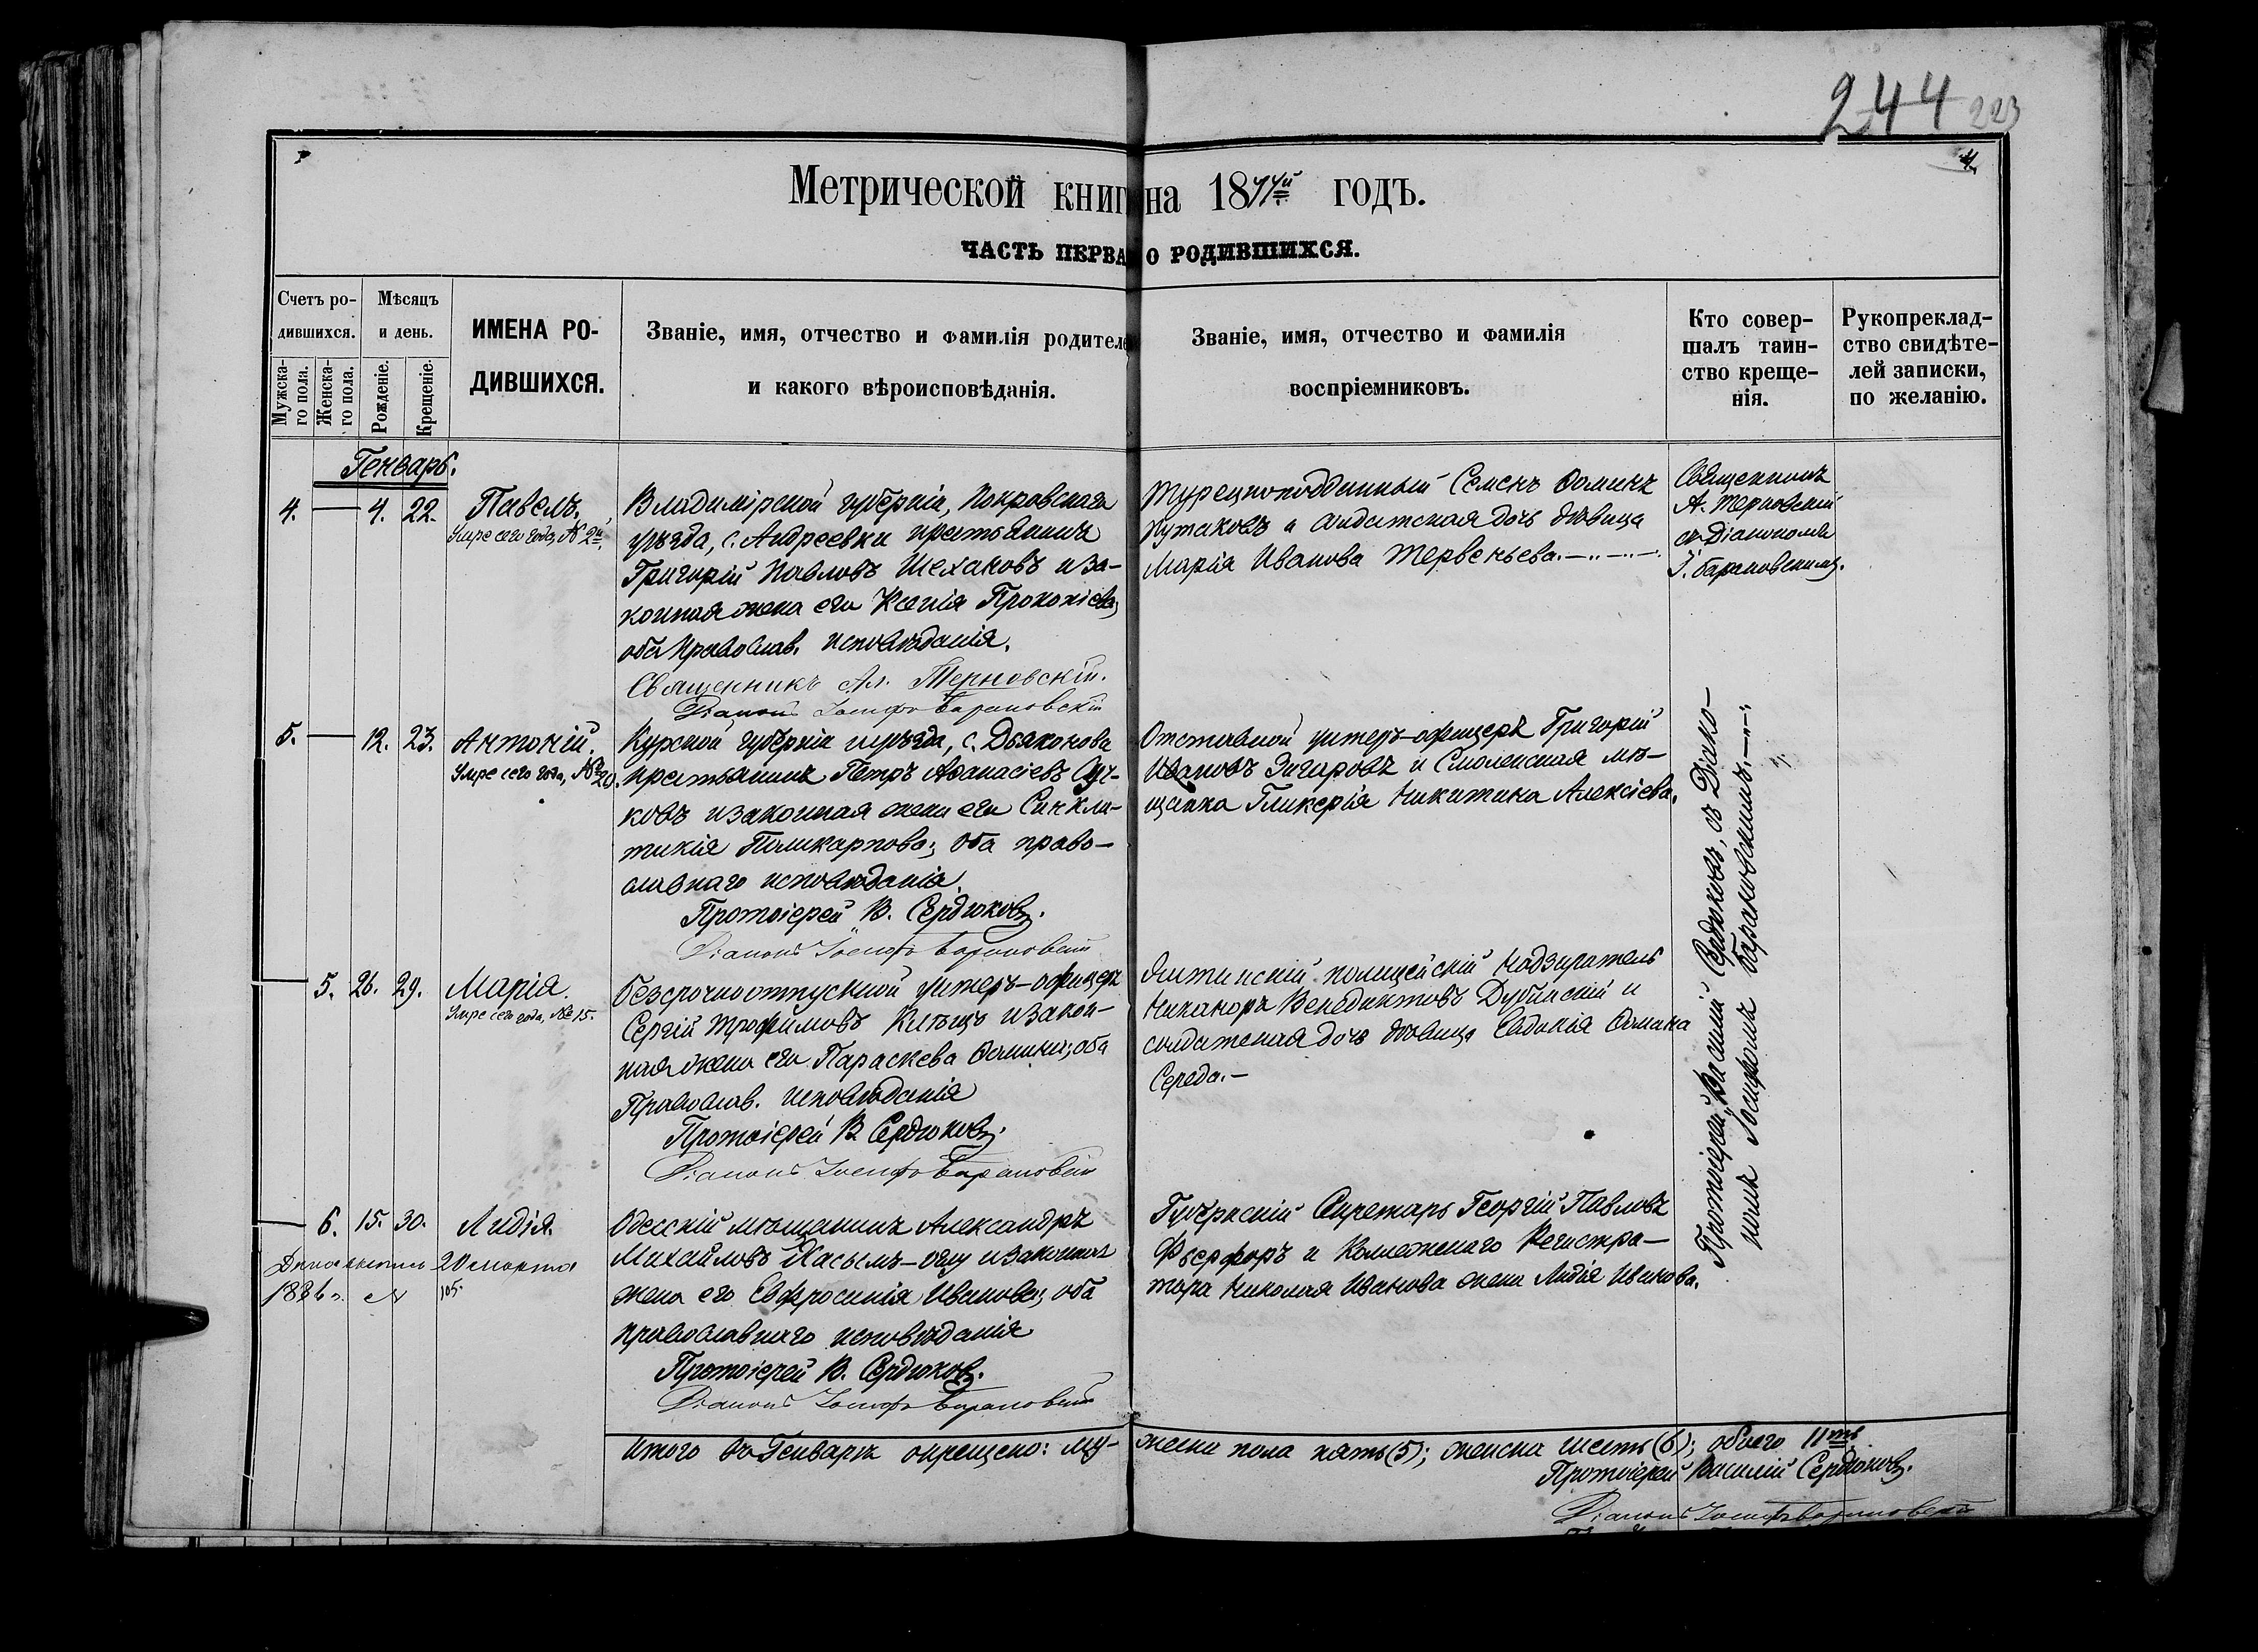 244 223
Метрической книг на 1877й годъ.
ЧАСТЬ ПЕРВА О РОДИВШИХСЯ.
Счетъ ро-
дившихся.
Мужска-
го пола.
Женска-
го пола.
Мѣсяцъ
и день.
Рожденіе.
Крещеніе.
ИМЕНА РО-
ДИВШИХСЯ.
Званіе, имя, отчество и фамилія родителе
и какого вѣроисповѣданія.
Званіе, имя, отчество и фамилія
воспріемниковъ.
Кто совер-
шалъ таин-
ство креще-
нія.
Рукопреклад-
ство свидѣте-
лей записки,
по желанію.
Генварь.
4. — 4. 22. Павелъ.
Умре сего года, №
Владимірской губерніи, Покровскаго
уѣзда, с. Андреевки крестьянинъ
Григорій Павловъ Шехаковъ и за-
конная жена его Ксенія Прокопіева;
оба Православ. исповѣданія.
Священникъ Ал. Терновскій.
Діаконъ Іосифъ Барановскій
Турецкоподданный Семенъ Ѳоминъ
Кутаковъ и солдатская дочь дѣвица
Марія Иванова Тервеньева.
Священникъ
А. Терновскій
съ Діакономъ
І. Барановскимъ.
5. — 12. 23. Антоній.
Умре сего года, № 20.
Курской губерніи и уѣзда, с. Дьяконова
крестьянинъ Петръ Аѳанасіевъ
ковъ и законная жена его Синкли-
тикія Поликарпова; оба право-
славнаго исповѣданія.
Протоіерей В. Сердюковъ.
Діаконъ Іосифъ Барановскій
Отставной унтеръ-офицеръ Григорій
Ивановъ Зигаровъ и Смоленская мѣ-
щанка Гликерія Никитина Алексіева.
— 5. 26. 29. Марія.
Умре сего года, № 15.
Безсрочноотпускной унтеръ-офицеръ
Сергій Трофимовъ и закон-
ная жена его Параскева Ѳомина; оба
Православ. исповѣданія
Протоіерей В. Сердюковъ.
Діаконъ Іосифъ Барановскій
полицейскій надзиратель
Никаноръ Венедиктовъ Дубинскій и
солдатская дочь дѣвица Евдокія Ѳомина
Середа.—
Протоіерей Василій Сердюковъ, съ Діако-
номъ Іосифомъ Барановскимъ.
— 6. 15. 30. Лидія.
20 марта
№ 105.
Одесскій мѣщанинъ Александръ
Михайловъ Хасымъ-оглу и законная
жена его Евфросинія Иванова; оба
православнаго исповѣданія
Протоіерей В. Сердюковъ.
Діаконъ Іосифъ Барановскій
Губернскій Секретарь Георгій Павловъ
Фьерфоръ и Коллежскаго Регистра-
тора Николая Иванова жена Лидія Иванова.
Итого въ Генварѣ окрещено: му- жеска пола пять (5); женска шесть (6); обоего 11ть
Протоіерей Василій Сердюковъ.
Діаконъ Іосифъ Барановскій